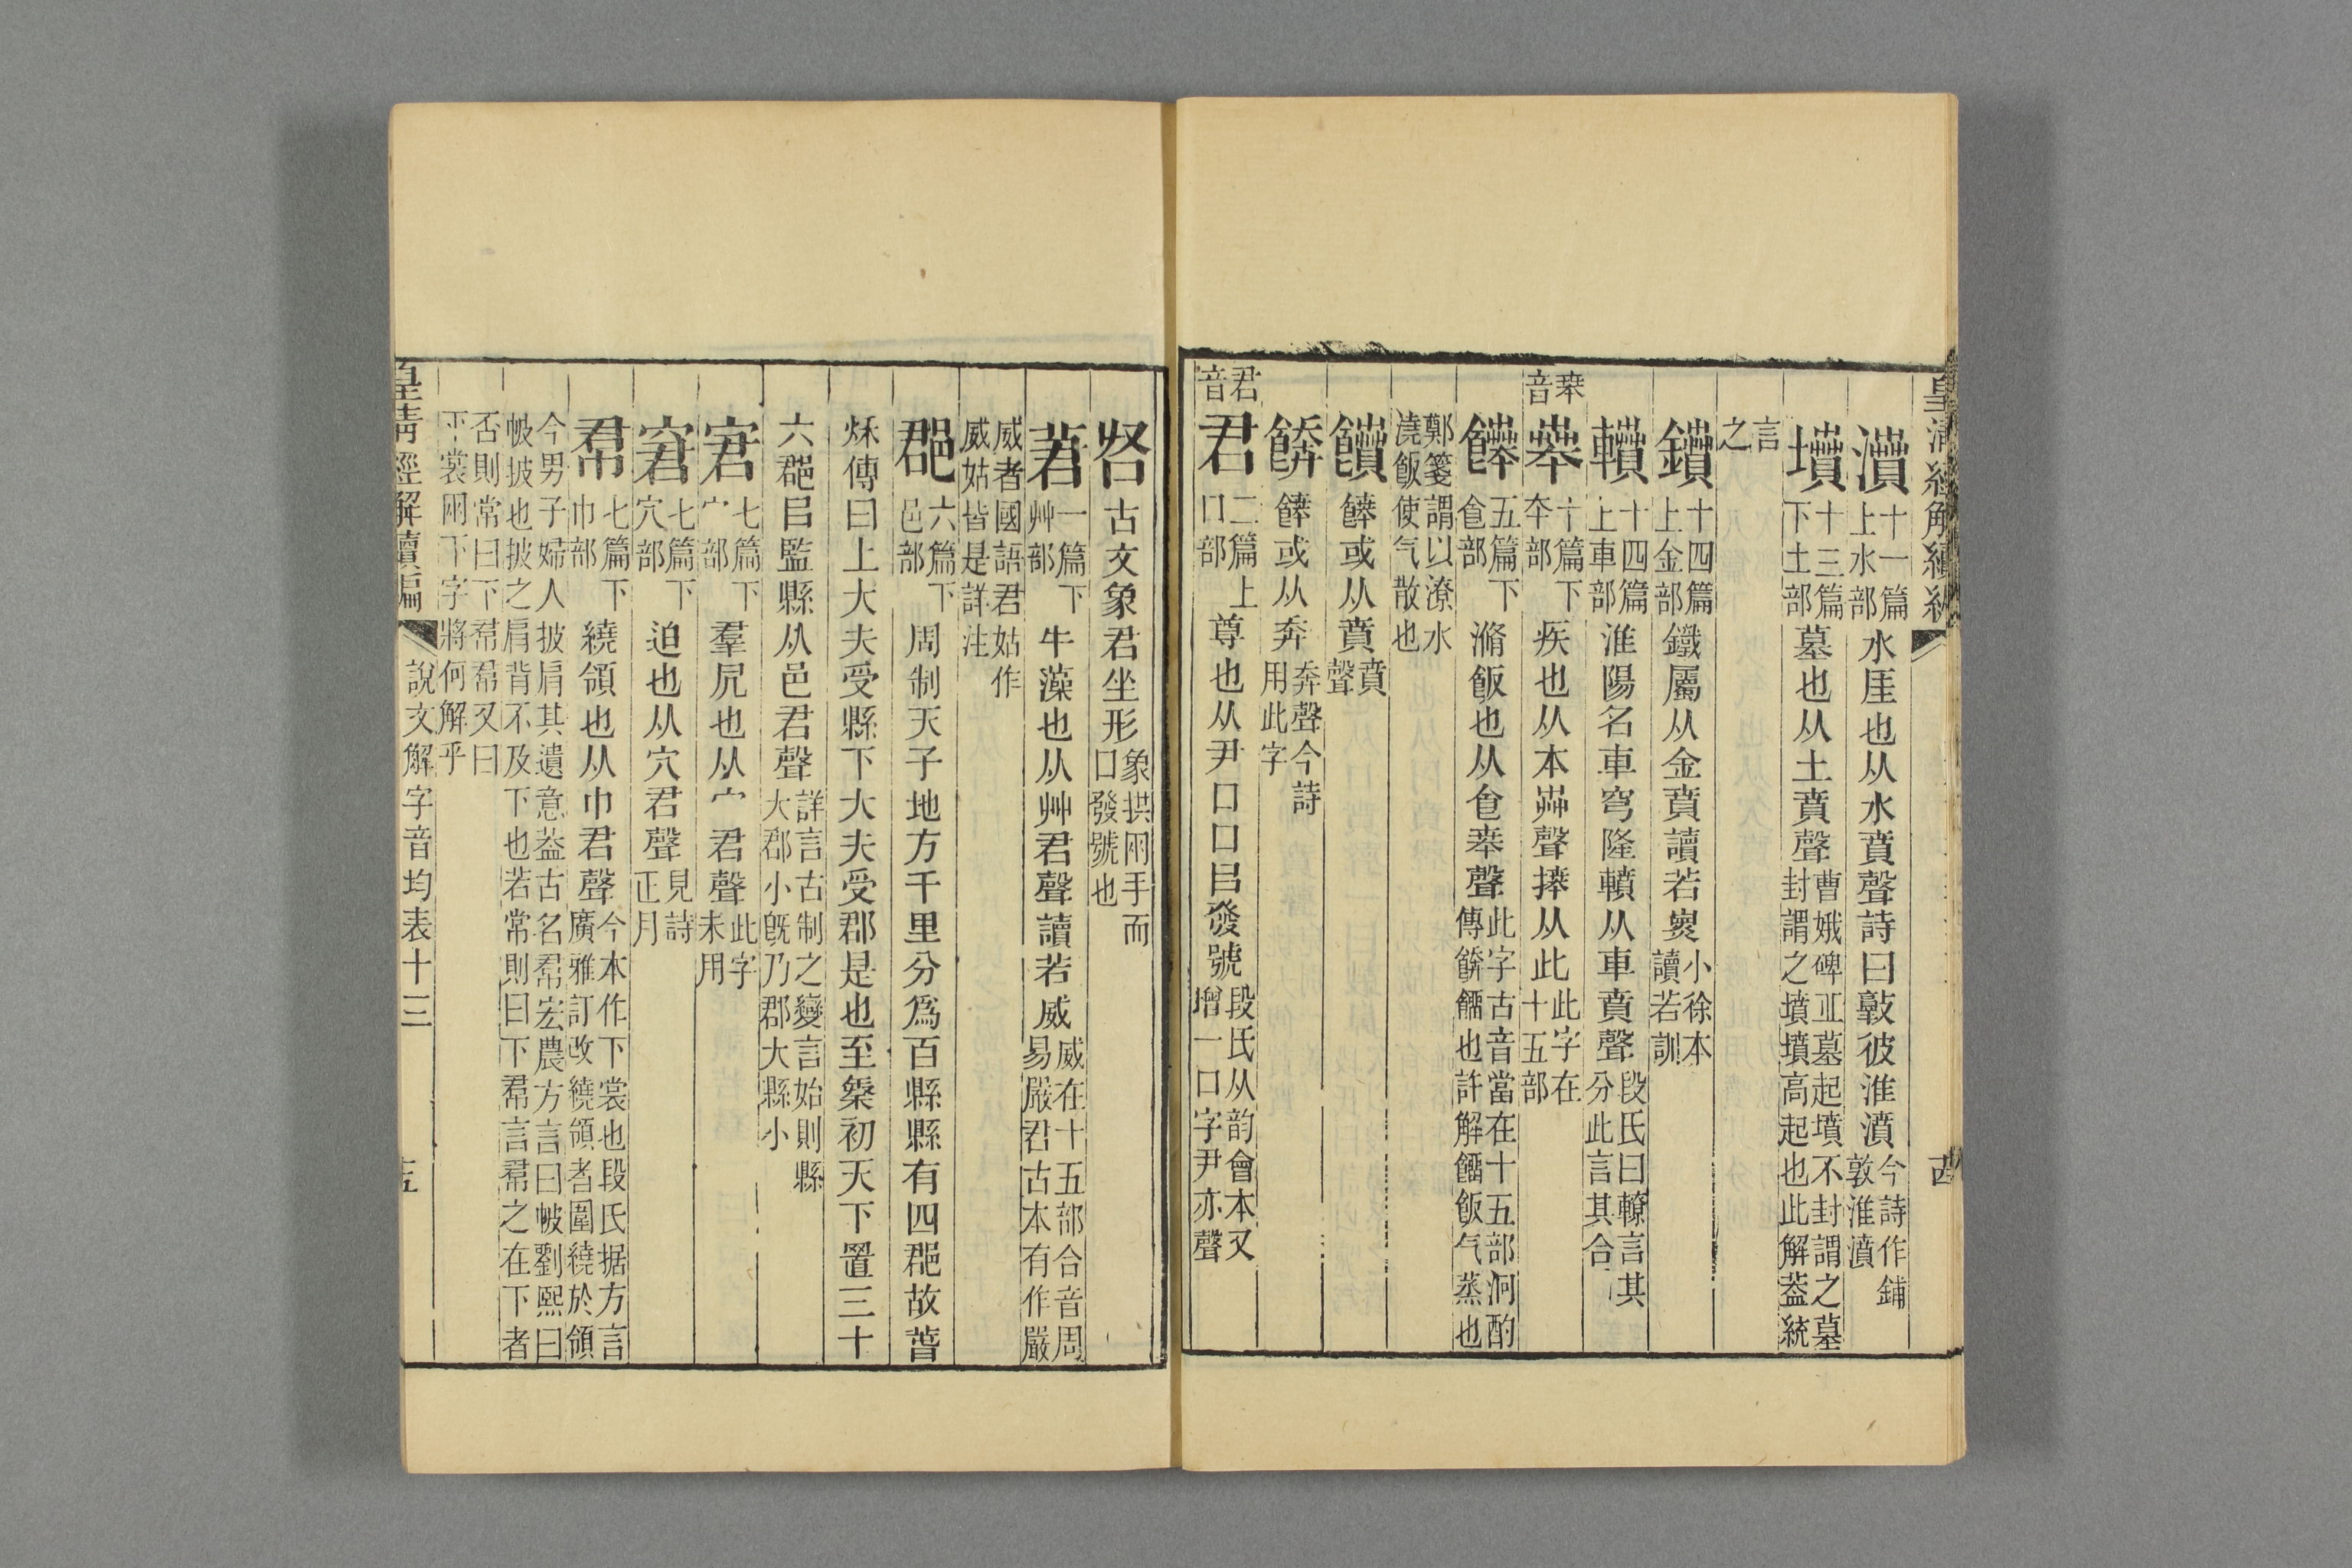 皇清經解續編
濆十一篇上水部水厓也从水賁聲詩曰敦彼淮濆今詩作鋪敦淮濆
墳十三篇下土部墓也从土賁聲曹娥碑丘墓起墳不封謂之墓封謂之墳墳高起也此解葢統
言之
鐼十四篇上金部鐵屬从金賁讀若㷉小徐本讀若訓
轒十四篇上車部淮陽名車穹隆轒从車賁聲段氏曰轑言其分此言其合
𠦪音
𠦪十篇下夲部疾也从本卉聲捧从此此字在十五部
餴五篇下食部滫飯也从食𠦪聲此字古音當在十五部泂酌傳餴餾也許解餾飯气蒸也
鄭箋謂以潦水澆飯使气散也
饙餴或从賁賁聲
餴餴或从奔奔聲今詩用此字
君音
君二篇上口部尊也从尹口口㠯發號段氏从韵會本又增一口字尹亦聲
𠱩古文象君坐形象拱兩手而口發號也
莙一篇下艸部牛藻也从艸君聲讀若威威在十五部合音周易嚴君古本有作嚴
威者國語君姑作威姑皆是詳注
郡六篇下邑部周制天子地方千里分爲百縣縣有四郡故萅
秌傳曰上大夫受縣下大夫受郡是也至秦初天下置三十
六郡㠯監縣从邑君聲詳言古制之變言始則縣大郡小旣乃郡大縣小
宭七篇下宀部羣凥也从宀君聲此字未用
窘七篇下穴部迫也从穴君聲見詩正月
帬七篇下巾部繞領也从巾君聲今本作下裳也段氏据方言廣雅訂改繞領者圍繞於領
今男子婦人披肩其遺意葢古名帬宏農方言曰帔劉熙曰帔披也披之肩背不及下也若常則曰下帬言帬之在下者
否則常曰下帬帬又曰下裳兩下字將何解乎
皇清經解續編 說文解字音均表十三 十五